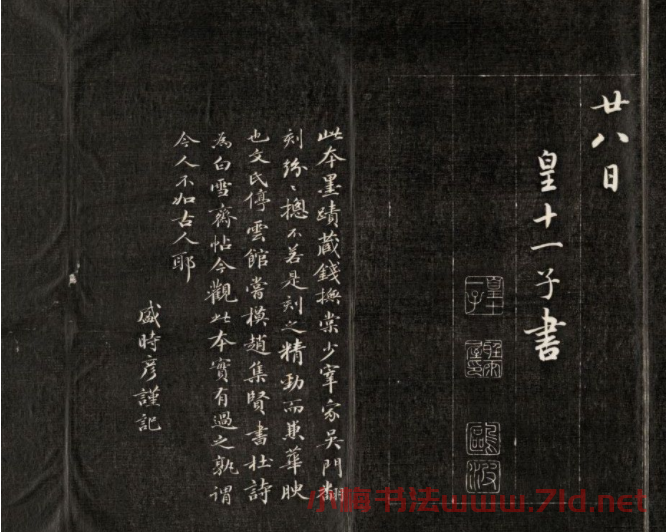 廿八日
皇十一子書
皇十一子
鷗波
此本墨蹟藏錢撫棠少宰家吳門翻
刻紛〻摠不若是刻之精勁而兼華映
也文氏停雲館嘗模趙集賢書杜詩
為白雪齋帖今觀此本實有過之孰謂
今人不如古人耶
盛時彥謹記
小梅书法www.7ld.net